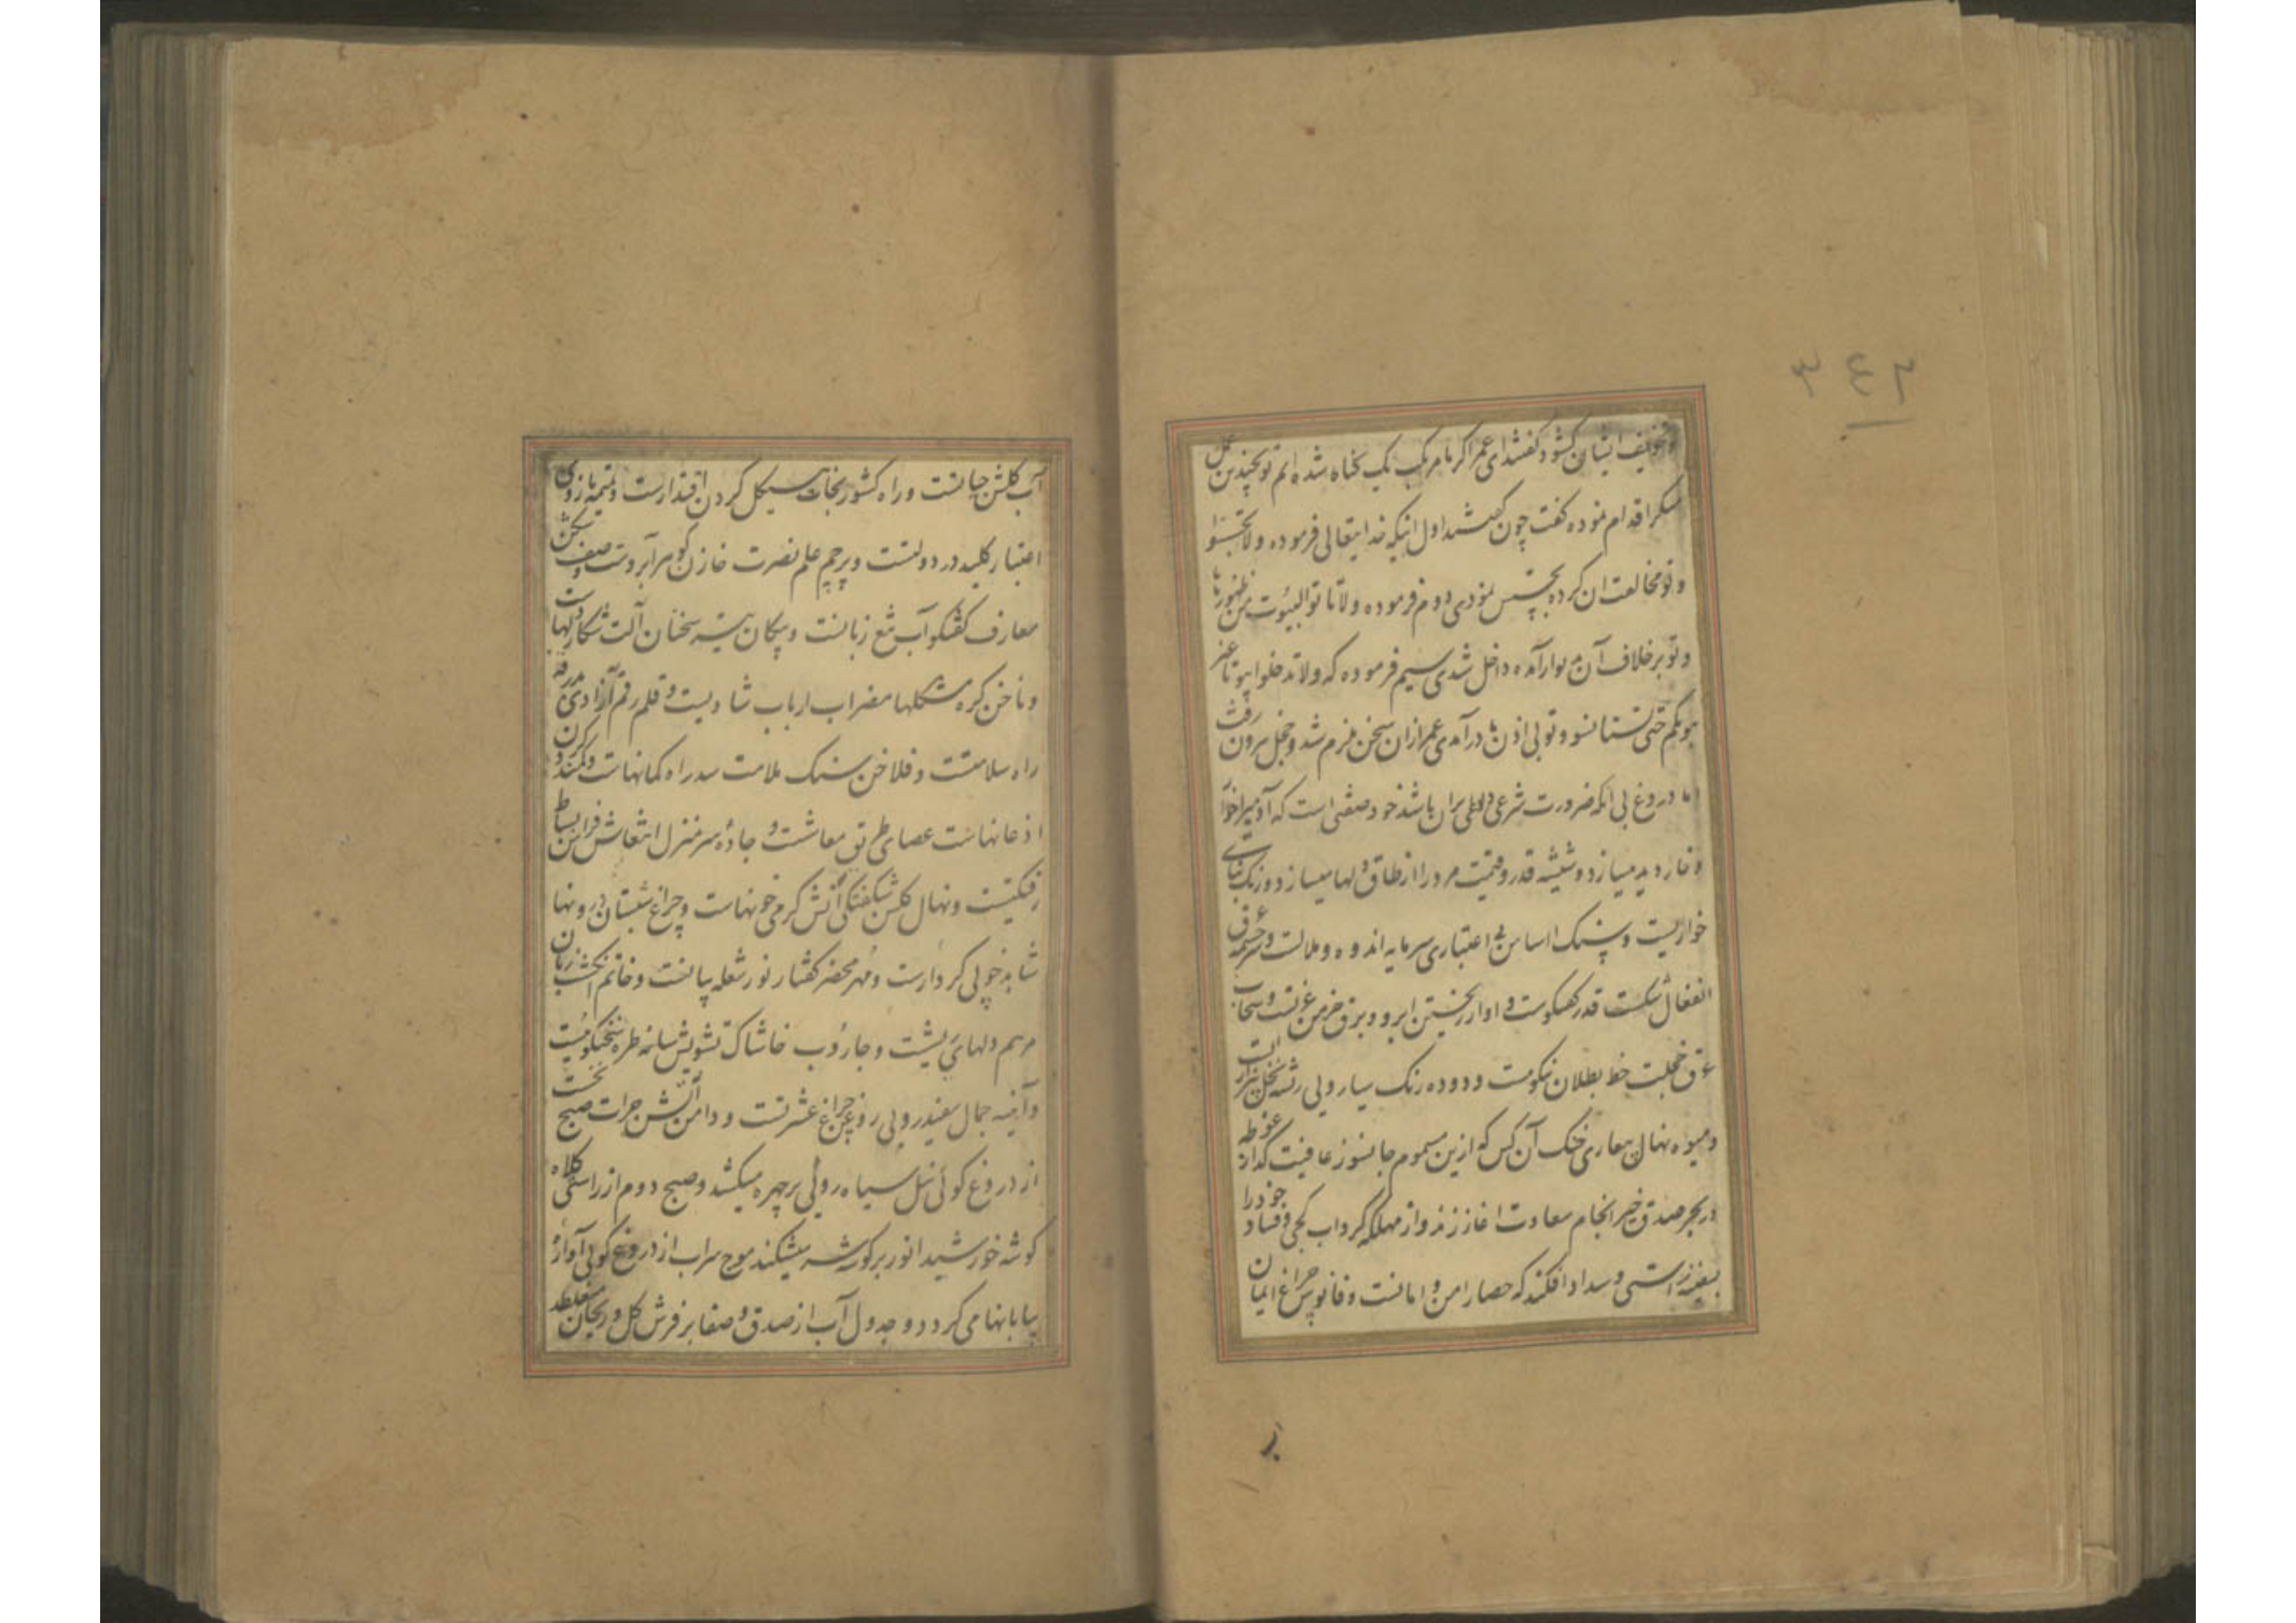 ۳٤۲
وتخویف ایشان کشود گفتند ای عمر اگر ما مرتکب یک گناه شده ایم تو بچندین عمل
منکر اقدام نموده گفت چون گفتند اول اینکه خدایتعالی فرموده ولا تجسسوا
و تو مخالفت ان کرده تجسس نمودی دوم فرموده ولا تاتوا البیوت من ظهورها
و تو بر خلاف آن از دیوار آمده داخل شدی سیم فرموده که ولا تدخلوا بیوتا غیر
بیوتکم حتی تستانسوا و تو بی اذن ما در آمدی عمر ازان سخن ملزم شد و خجل بیرون رفت
اما دروغ بی انکه ضرورت شرعی داعی بران باشد خود صفتی است که آدمیرا خوار
و خار دیده میسازد و شیشه قدر و قیمت مرد را از طاق دلها میسازد و زنک بنای
خواریست و سنک اساس بی اعتباری سرمایه اندوه و ملالت و سرچشمه عرق
انفعال شکست قدر کفتکوست و اوار ریختن ابرو و برق خرمن عزتست و سحاب
عرق خجلت خط بطلان نیکوست و دوده رنک سیارویی ریشه نخل
و میوه نهال بیعاری خنک آن کس که ازین سموم جانسوز عافیت کداز غوطه
در بحر صدق خیر انجام سعادت اغاز زند و از مهلکه کرداب کجی و فساد خود را
بسفینه راستی و سداد افکند که حصار امن و امانست و فانوس چراغ ایمان
آب کلشن جانست و راه کشور نجات هیکل کردن اقتدارست و تمیمه بازوی
اعتبار کلید در دولتست و پرچم علم نصرت خازن کوهر آبروست و صف شکن
معارف کفتکو آب تیغ زبانست و پیکان تیر سخنان آلت شکار دلهاست
و ناخن کره مشکلها مضراب ارباب شادیست و قلم رقم آزادی بدرقه
راه سلامتست و فلاخن سنک ملامت سد راه کمانهاست و کمند کردن
اذعانهاست عصای طریق معاشست و جاده سر منزل انتعاش فراش بساط
رنکینیست و نهال کلشن شکفتکی آتش کرمی خونهاست و چراغ شبستان درونها
شاهد خوبی کردارست و مهر محضر کفتار نور شعله بیانست و خاتم انکشت زبان
مرهم دلهای ریشست و جاروب خاشاک تشویش شانه طره نیکوییست
و آینه جمال سفید رویی روغن چراغ عشرتست و دامن آتش جرات صبح نخست
از دروغ کوئی نیل سیاه رویی بر چهره میکشد و صبح دوم از راستی کلاه
کوشه خورشید انور بر کوشه میشکند موج سراب از دروغ کویی آواره
بیابانها می کردد و جدول آب از صدق و صفا بر فرش کل و ریحان میغلطد